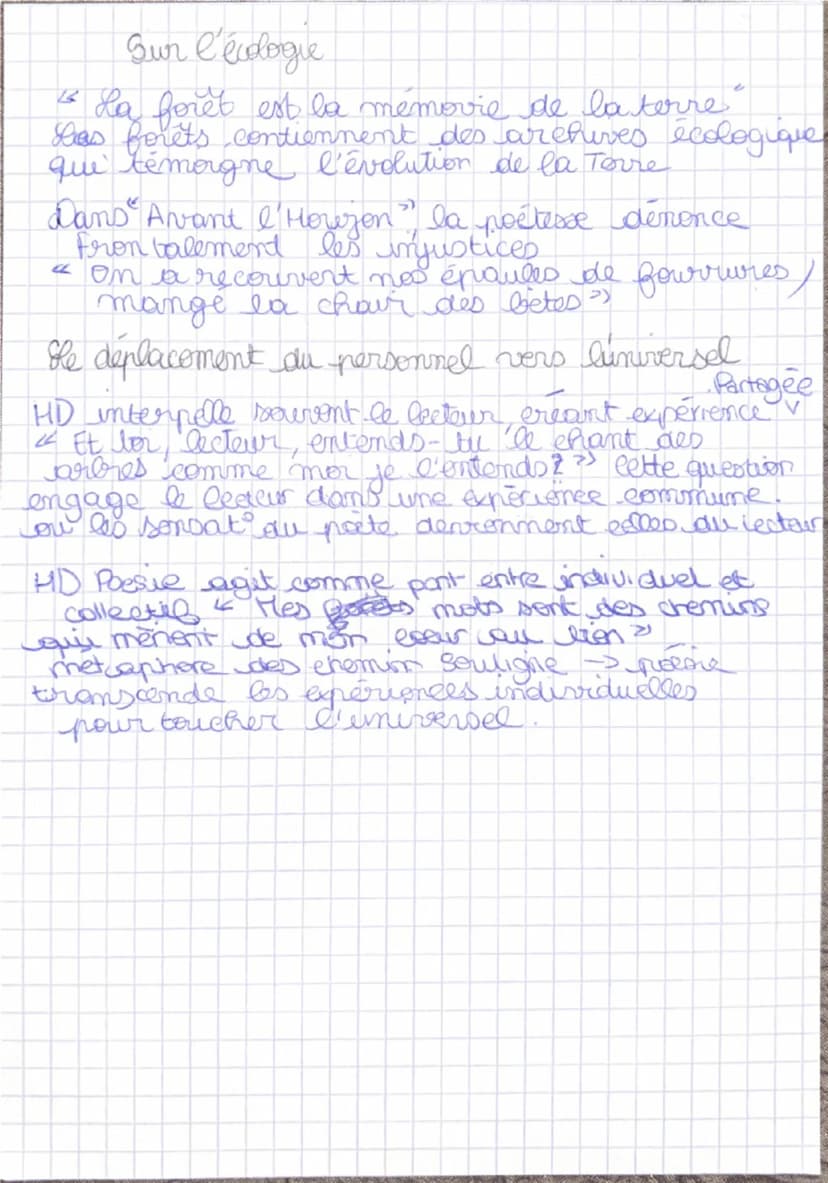 Sur l'écologie
" La forêt est la mémovie de la terre"
Les forêts contiennent des archives écologique
qui témoigne l'évolution de la Terre
Dans " Avant l'Horizon ", la poétesse dénonce
frontalement les injustices
" On a recouvert nos épaules de fourrures /
mangé la chair des bêtes "
Le déplacement du personnel vers l'universel
Partagée
HD interpelle souvent le lecteur, créant expérience v
" Et toi, lecteur, entends-tu le chant des
arbres comme moi je l'entends ? " Cette question
engage le lecteur dans une expérience commune.
où les sensat° du poète deviennent celles du lecteur
HD Poésie agit comme pont entre individuel et
collectif " Mes mots sont des chemins
qui mènent de mon coeur au tien "
métaphore des chemin souligne -> poésie
transcende les expériences individuelles
pour toucher l'universel.